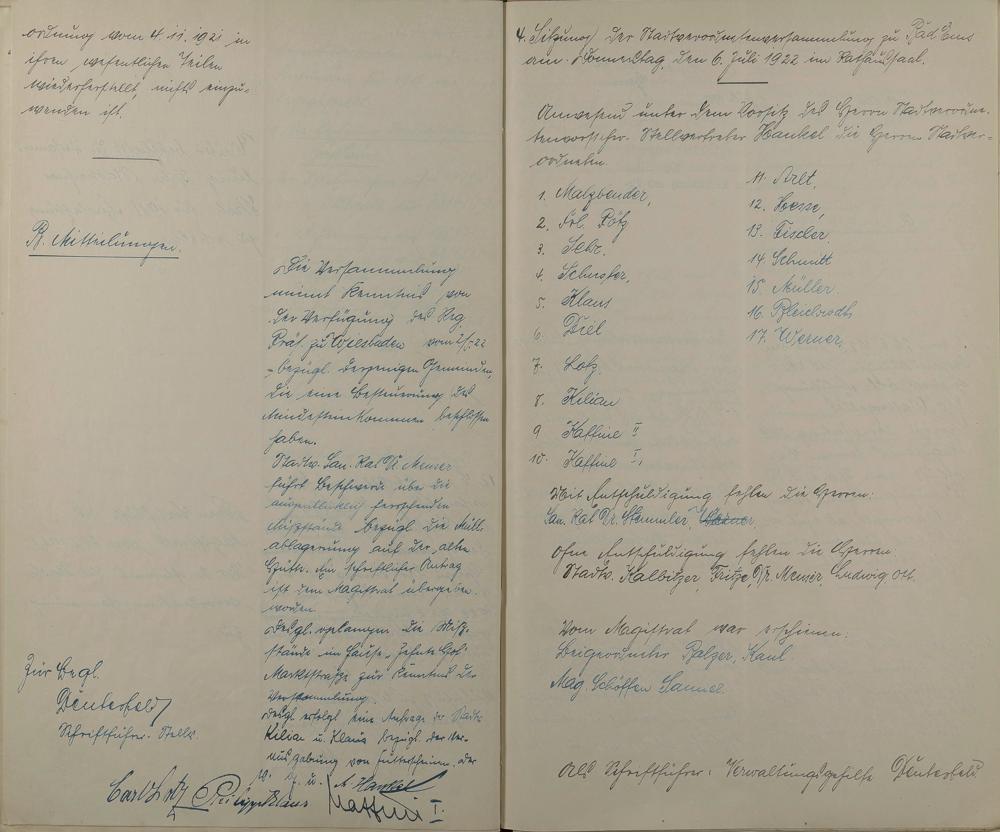 ordnung vom 4.11.1921 in
ihren wesentlichen Teilen
wiederherstellt, nichts einzu-
wenden ist.
B. Mitteilungen.
Die Versammlung
nimmt Kenntnis von
der Verfügung des Reg.
Präs. zu Wiesbaden vom
bezügl. derjenigen Gemeinden,
die eine Besteuerung des
Mindesteinkommen beschlossen
haben.
Stadtv. San. Rat Dr. Meuser
führt Beschwerde über die
augenblicklich herrschenden
Mißstände bezügl. die Müll-
ablagerung auf der alten
Ein schriftlicher Antrag
ist dem Magistrat übergeben
worden.
Desgl. gelangen die Miß-
stände im Hause
Marktstraße zur Kenntnis der
Versammlung.
Desgl. erfolgt eine Anfrage der Stadtv.
Kilian u. Klaus bezügl. der Ver-
ausgabung von
Zur Begl.
Deuterfeld
Schriftführer-Stellv.
v. g. u. A. Hankel
Philipp Klaus Kaffine I.
4. Sitzung der Stadtverordnetenversammlung zu Bad Ems
am Donnerstag, den 6. Juli 1922 im Rathaussaal.
Anwesend unter dem Vorsitz des Herrn Stadtverordne-
tenvorsteher-Stellvertreter Hankel die Herren Stadtver-
ordneten
1. Malzbender,
2. Frl. Rötz
3. Sehr.
4. Schuster,
5. Klaus
6. Diel
7. Lotz
8. Kilian
9 Kaffine II
10. Kaffine I,
11. Arlt,
12. Hesse,
13. Fischer
14 Schmitt
15. Müller
16.
17. Werner,
Mit Entschuldigung fehlen die Herren:
San. Rat Dr. Stemmler,
Ohne Entschuldigung fehlen die Herren
Stadtv. Kalbitzer, Fritze, Dr. Meuser, Ludwig Ott.
Vom Magistrat war erschienen:
Beigeordneter Balzer, Kaul
Mag. Schöffen
Als Schriftführer: Verwaltungsgehilfe Deuterfeld